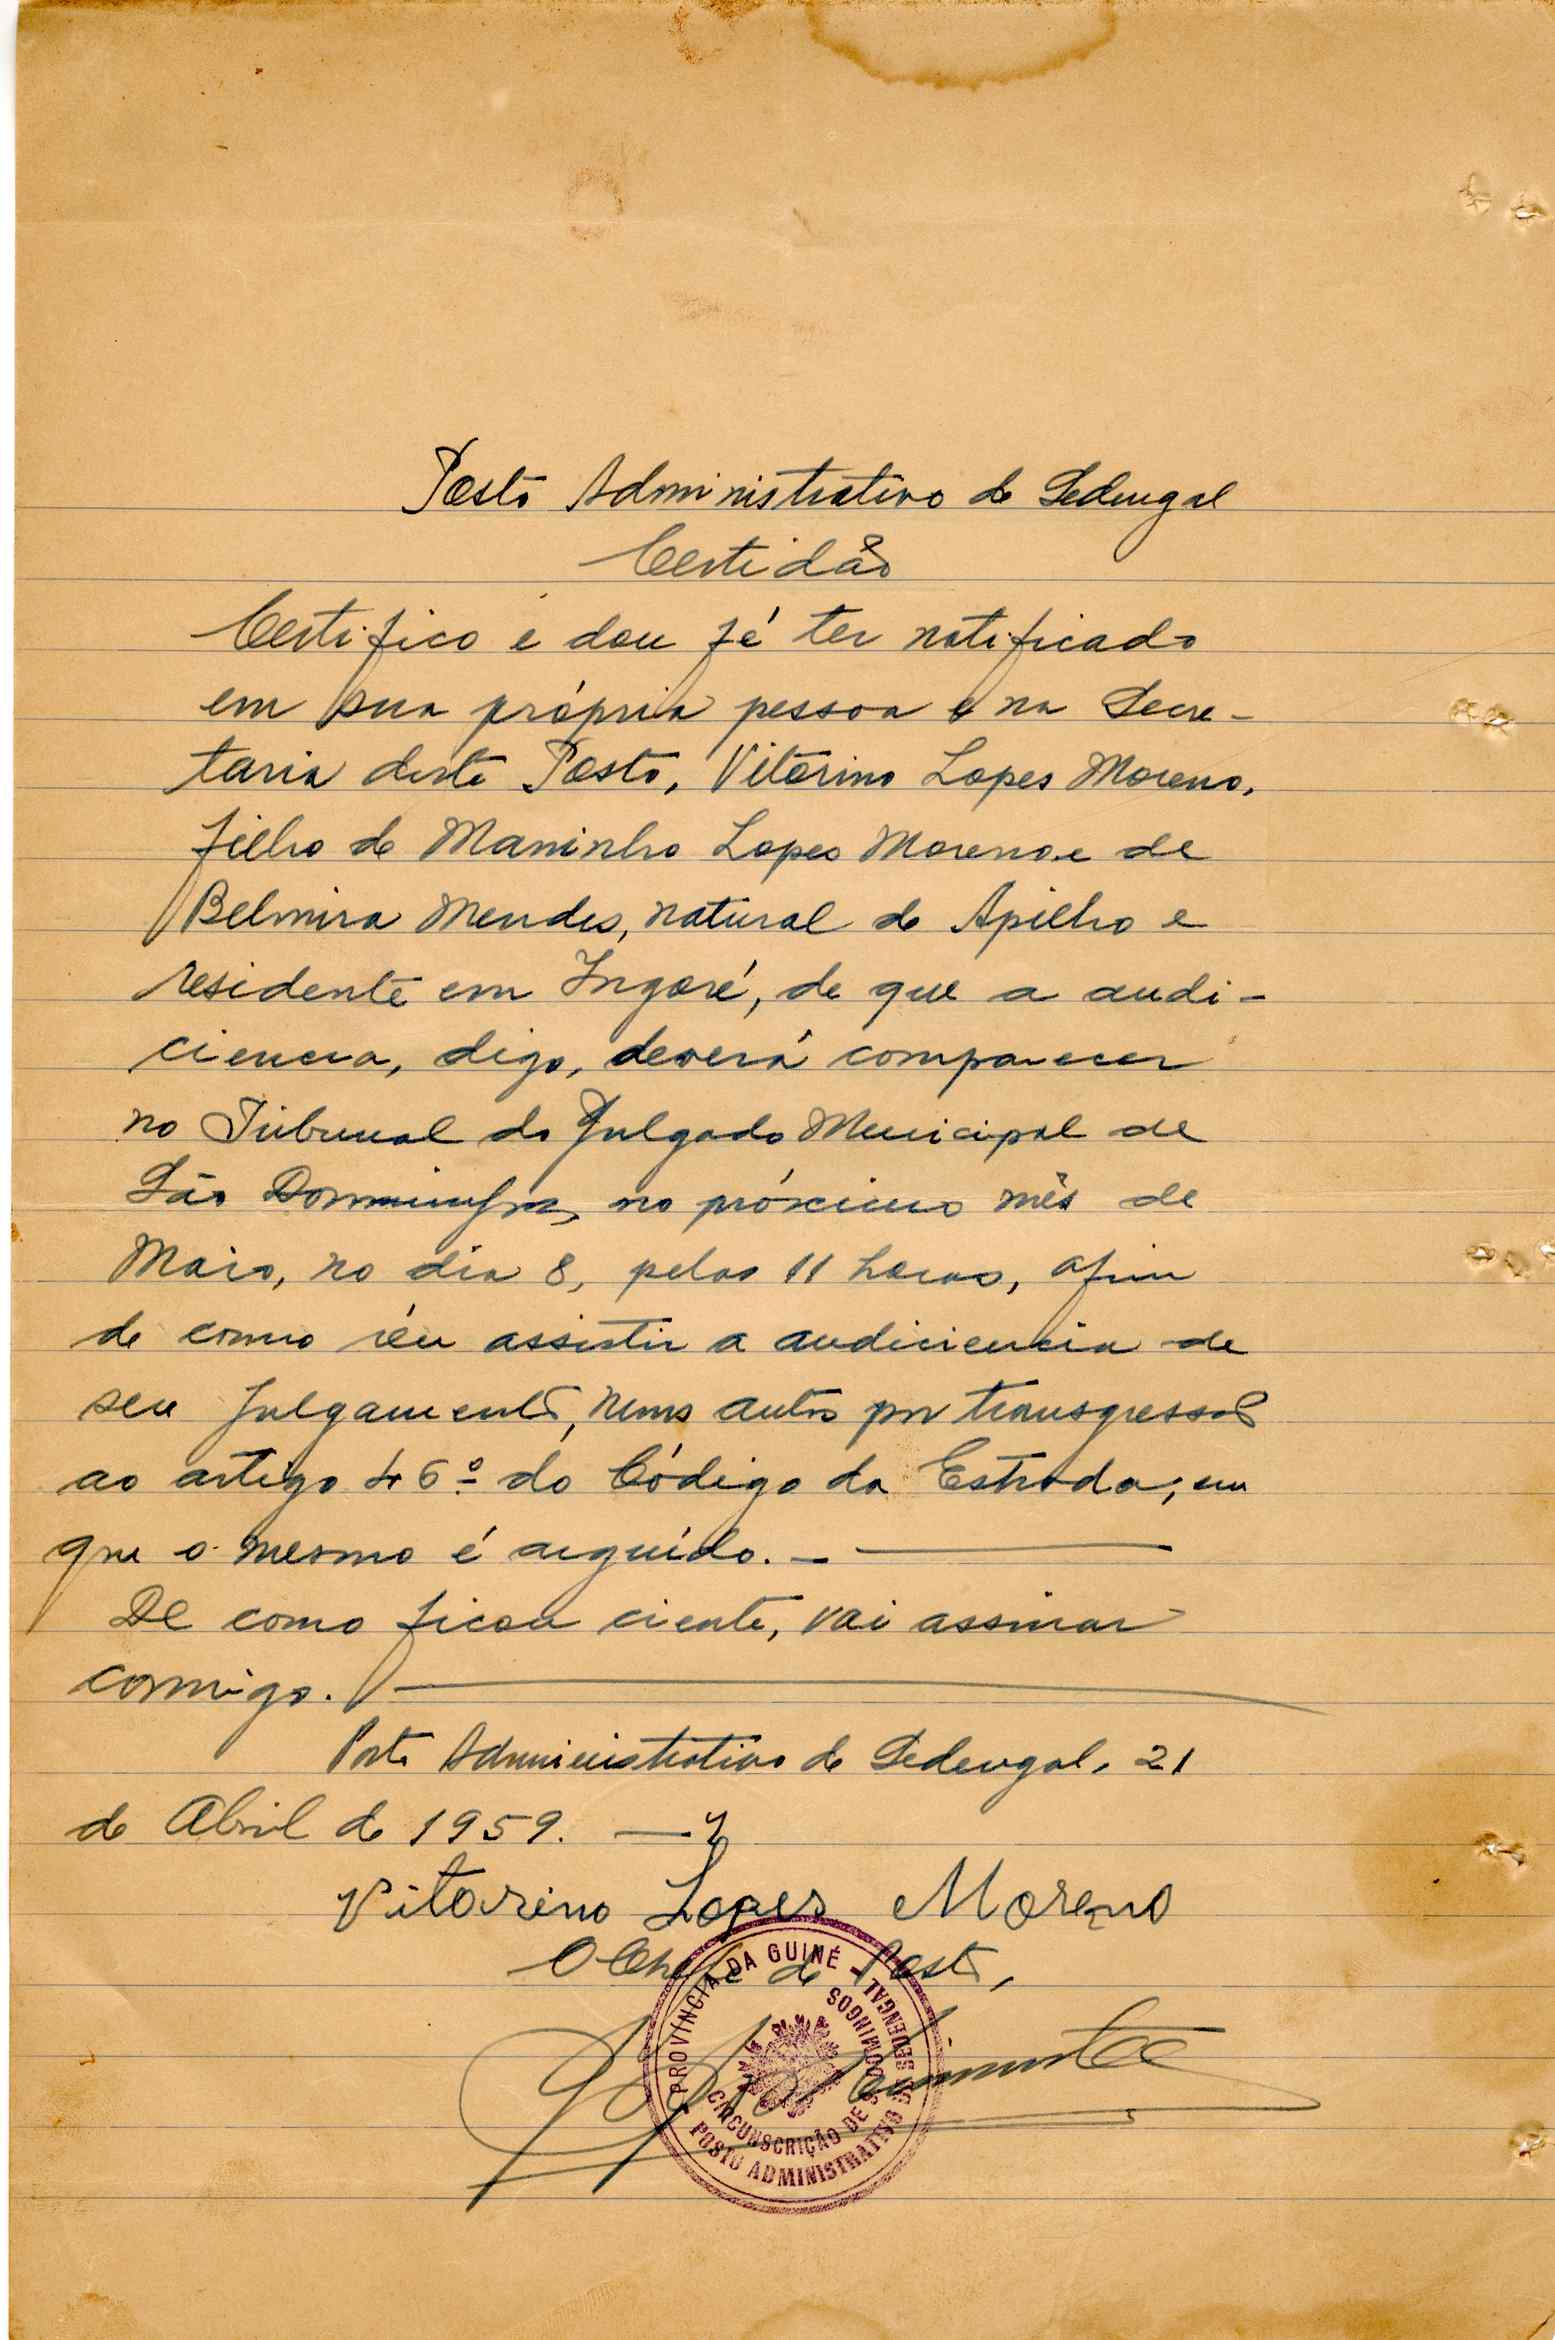 Posto Administrativo de Sedengal
Certidão
Certifico e dou fé ter notificado
em sua própria pessoa e na Secre-
taria deste Posto, Vitorino Lopes Moreno,
filho de Maninho Lopes Moreno e de
Belmira Mendes, natural de Apilho e
residente em Ingoré, de que a audi-
ciencia, digo, deverá comparecer
no Tribunal do Julgado Municipal de
São Domingos, no próximo mês de
Maio, no dia 8, pelas 11 horas, afim
de como réu assistir a audiciencia de
seu julgamento, nuns autos por transgressão
ao artigo 46º do Código da Estrada, em
que o mesmo é arguído. —
De como ficou ciente, vai assinar
comigo. —
Posto Administrativo de Sedengal, 21
de Abril de 1959. —
Vitorino Lopes Moreno
O Chefe de Posto,
PROVÍNCIA DA GUINÉ - POSTO ADMINISTRATIVO DE SEDENGAL
CIRCUNSCRIÇÃO DE S. DOMINGOS